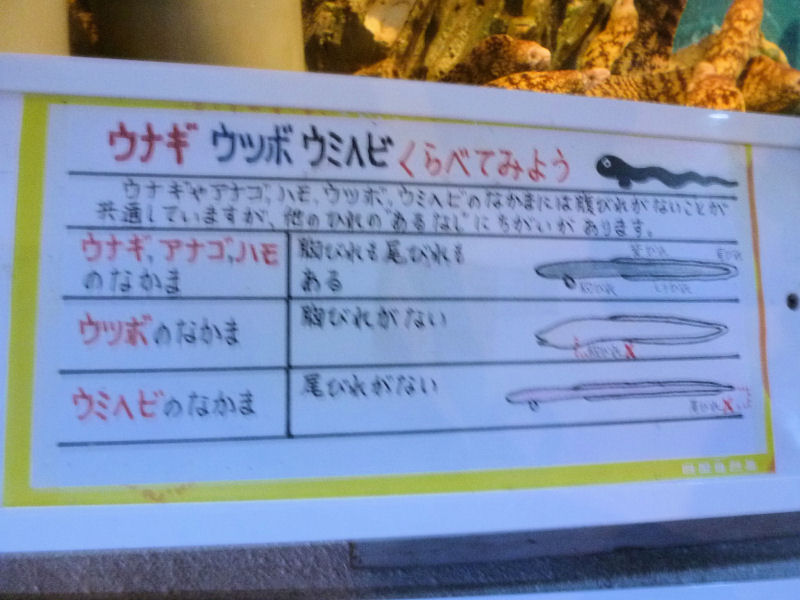 ウナギ ウツボ ウミヘビ くらべてみよう
ウナギやアナゴ,ハモ,ウツボ,ウミヘビのなかまには腹びれがないことが
共通していますが、他のひれの"あるなし"にちがいがあります。
ウナギ,アナゴ,ハモ
のなかま
胸びれも尾びれも
ある
背びれ
尾びれ
胸びれ
しりびれ
ウツボのなかま
胸びれがない
胸びれ X
ウミヘビのなかま
尾びれがない
尾びれ X